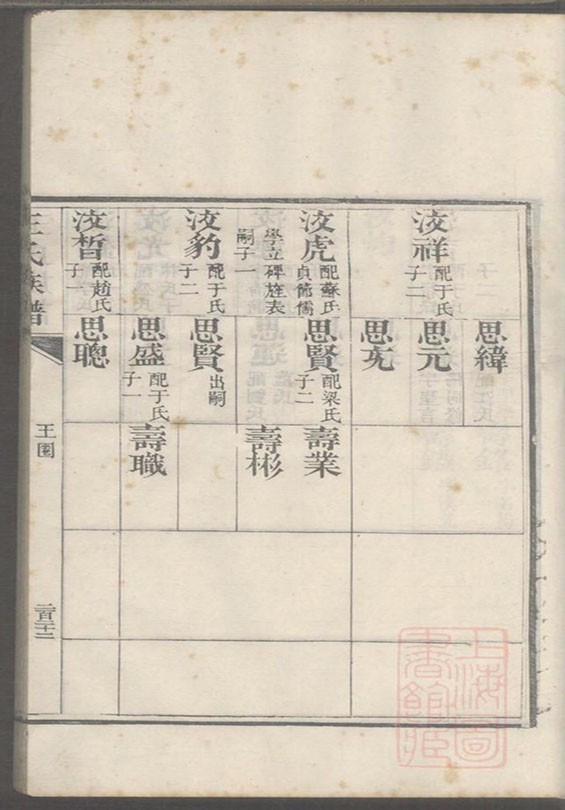 思緯
汝祥 配于氏 子二
思元
思充
汝虎 配蘇氏 貞節儒
學立碑旌表
嗣子一
思賢 配梁氏 子二
壽業
壽彬
汝豹 配于氏 子二
思賢 出嗣
思盛 配于氏 子一
壽職
汝皙 配趙氏 子一
思聰
王氏族譜
王園
二百三十二
上海圖書館藏